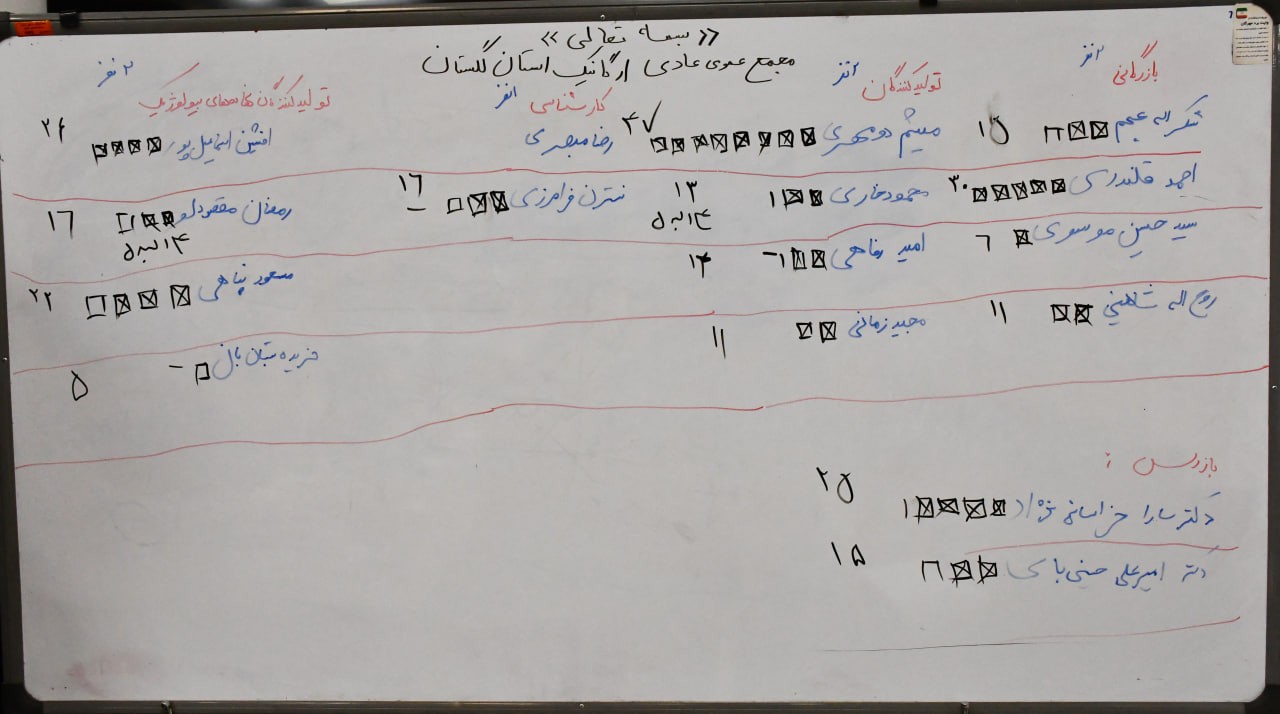 « بسمه تعالی »
مجمع عمومی عادی ارگانیک استان گلستان
بازرگانی ۲نفر
شکراله عجم ۱۵
احمد قلندری ۳۰
سید حسین موسوی ۶
روح اله شاهینی ۱۱
تولیدکنندگان ۲نفر
میثم دومهری ۴۷
محمود خاری ۱۳
۱۴ لبه ۵
امید رفاهی ۱۴
مجید زمانی ۱۱
کارشناسی ۱نفر
رضا مبصری
نسترن فرامرزی ۱۶
تولیدکنندگان نهاده‌های بیولوژیک ۲نفر
افشین اسماعیل پور ۲۶
رمضان مقصودلو ۱۶
۱۴ لبه ۵
مسعود پناهی ۲۲
فریده ۵
بازرس :
دکتر سارا خراسانی نژاد ۲۵
دکتر امیرعلی حسینی ۱۵